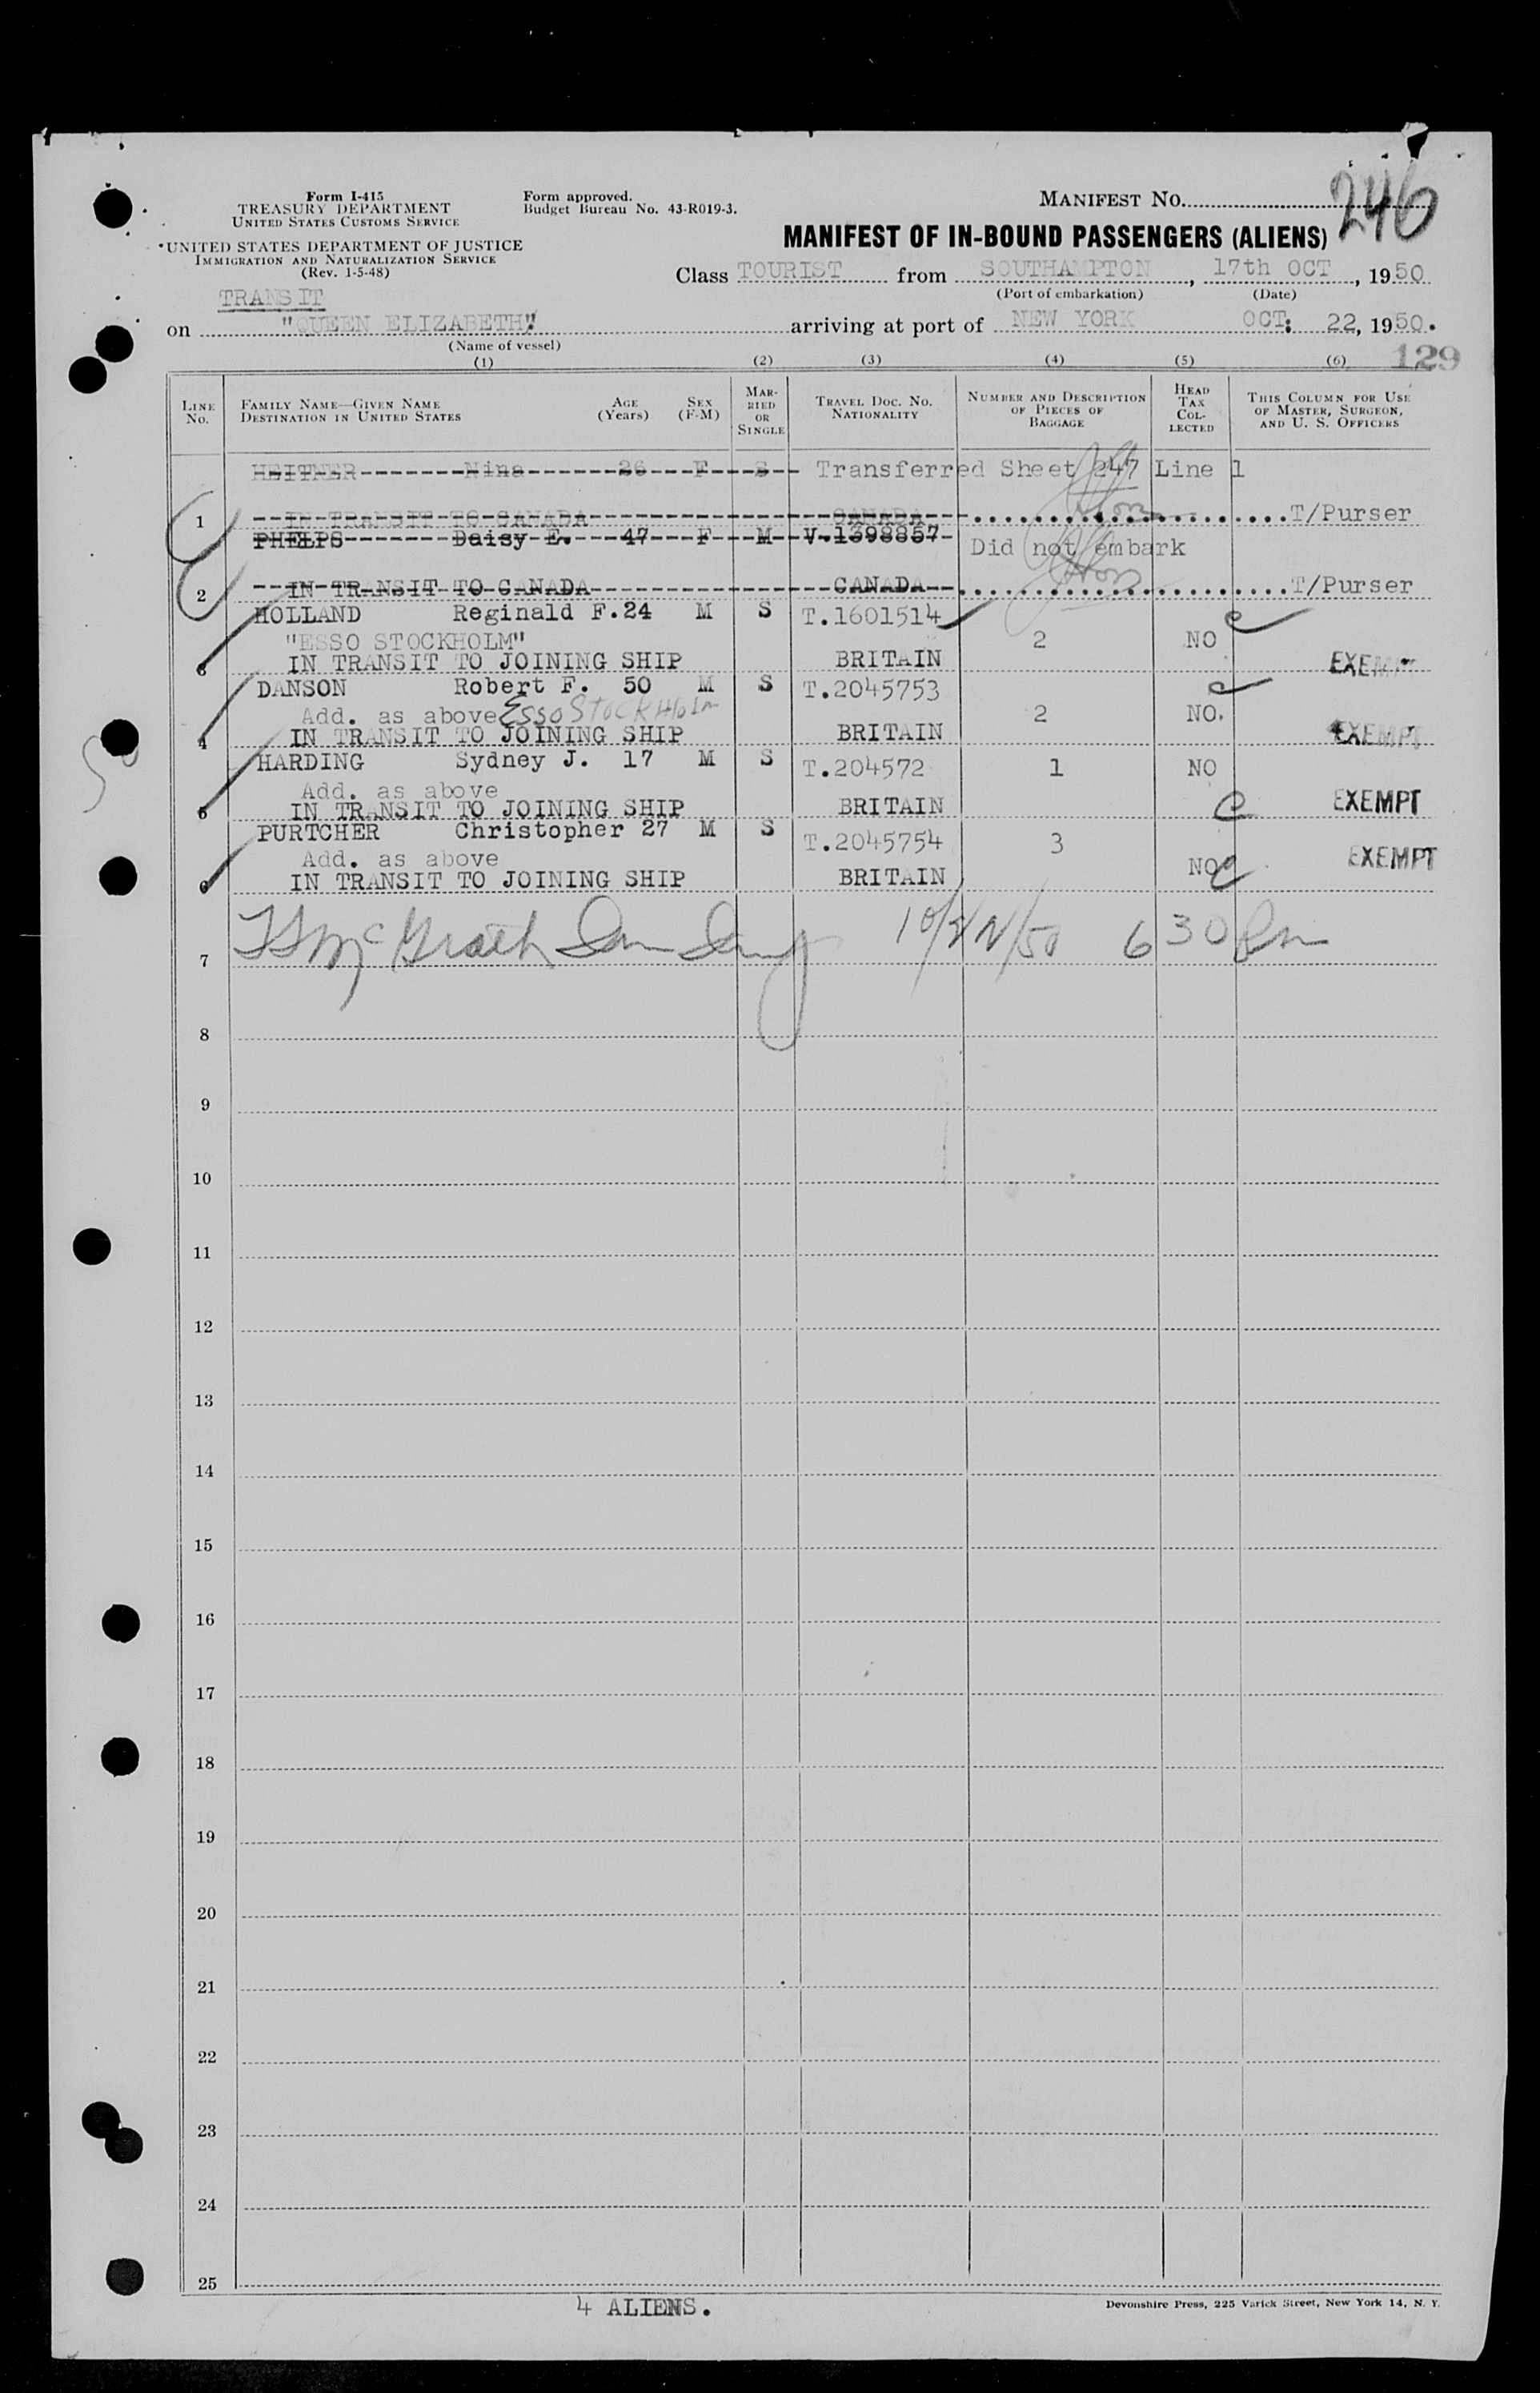 Form I-415
TREASURY DEPARTMENT
UNITED STATES CUSTOMS SERVICE
UNITED STATES DEPARTMENT OF JUSTICE
IMMIGRATION AND NATURALIZATION SERVICE
(Rev. 1-5-48)
Form approved.
Budget Bureau No. 43-R019-3.
MANIFEST NO. 246
MANIFEST OF IN-BOUND PASSENGERS (ALIENS)
Class TOURIST from SOUTHAMPTON, 17th OCT, 1950
(Port of embarkation) (Date)
TRANSIT
on "QUEEN ELIZABETH" arriving at port of NEW YORK OCT: 22, 1950.
(Name of vessel)
(1) (2) (3) (4) (5) (6) 129
LINE NO. FAMILY NAME—GIVEN NAME DESTINATION IN UNITED STATES AGE (Years) SEX (F-M) MARRIED OR SINGLE TRAVEL DOC. NO. NATIONALITY NUMBER AND DESCRIPTION OF PIECES OF BAGGAGE HEAD TAX COLLECTED THIS COLUMN FOR USE OF MASTER, SURGEON, AND U. S. OFFICERS
HEITNER Nina 26 F S Transferred Sheet 247 Line 1
1 IN TRANSIT TO CANADA CANADA T/Purser
PHELPS Daisy E. 47 F M V.1398857 Did not embark
2 IN TRANSIT TO CANADA CANADA T/Purser
HOLLAND Reginald F. 24 M S T.1601514
"ESSO STOCKHOLM" 2 NO
3 IN TRANSIT TO JOINING SHIP BRITAIN EXEMPT
DANSON Robert F. 50 M S T.2045753
Add. as above Esso Stockholm 2 NO.
4 IN TRANSIT TO JOINING SHIP BRITAIN EXEMPT
HARDING Sydney J. 17 M S T.204572 1 NO
Add. as above
5 IN TRANSIT TO JOINING SHIP BRITAIN EXEMPT
PURTCHER Christopher 27 M S T.2045754 3
Add. as above NO EXEMPT
6 IN TRANSIT TO JOINING SHIP BRITAIN
McGrath 630 Pm
7
8
9
10
11
12
13
14
15
16
17
18
19
20
21
22
23
24
25
4 ALIENS.
Devonshire Press, 225 Varick Street, New York 14, N. Y.